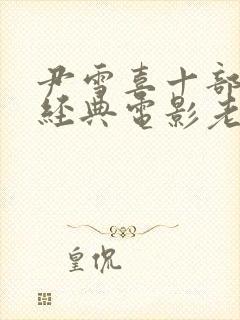 尹雪喜十部
經典電影老
皇侃